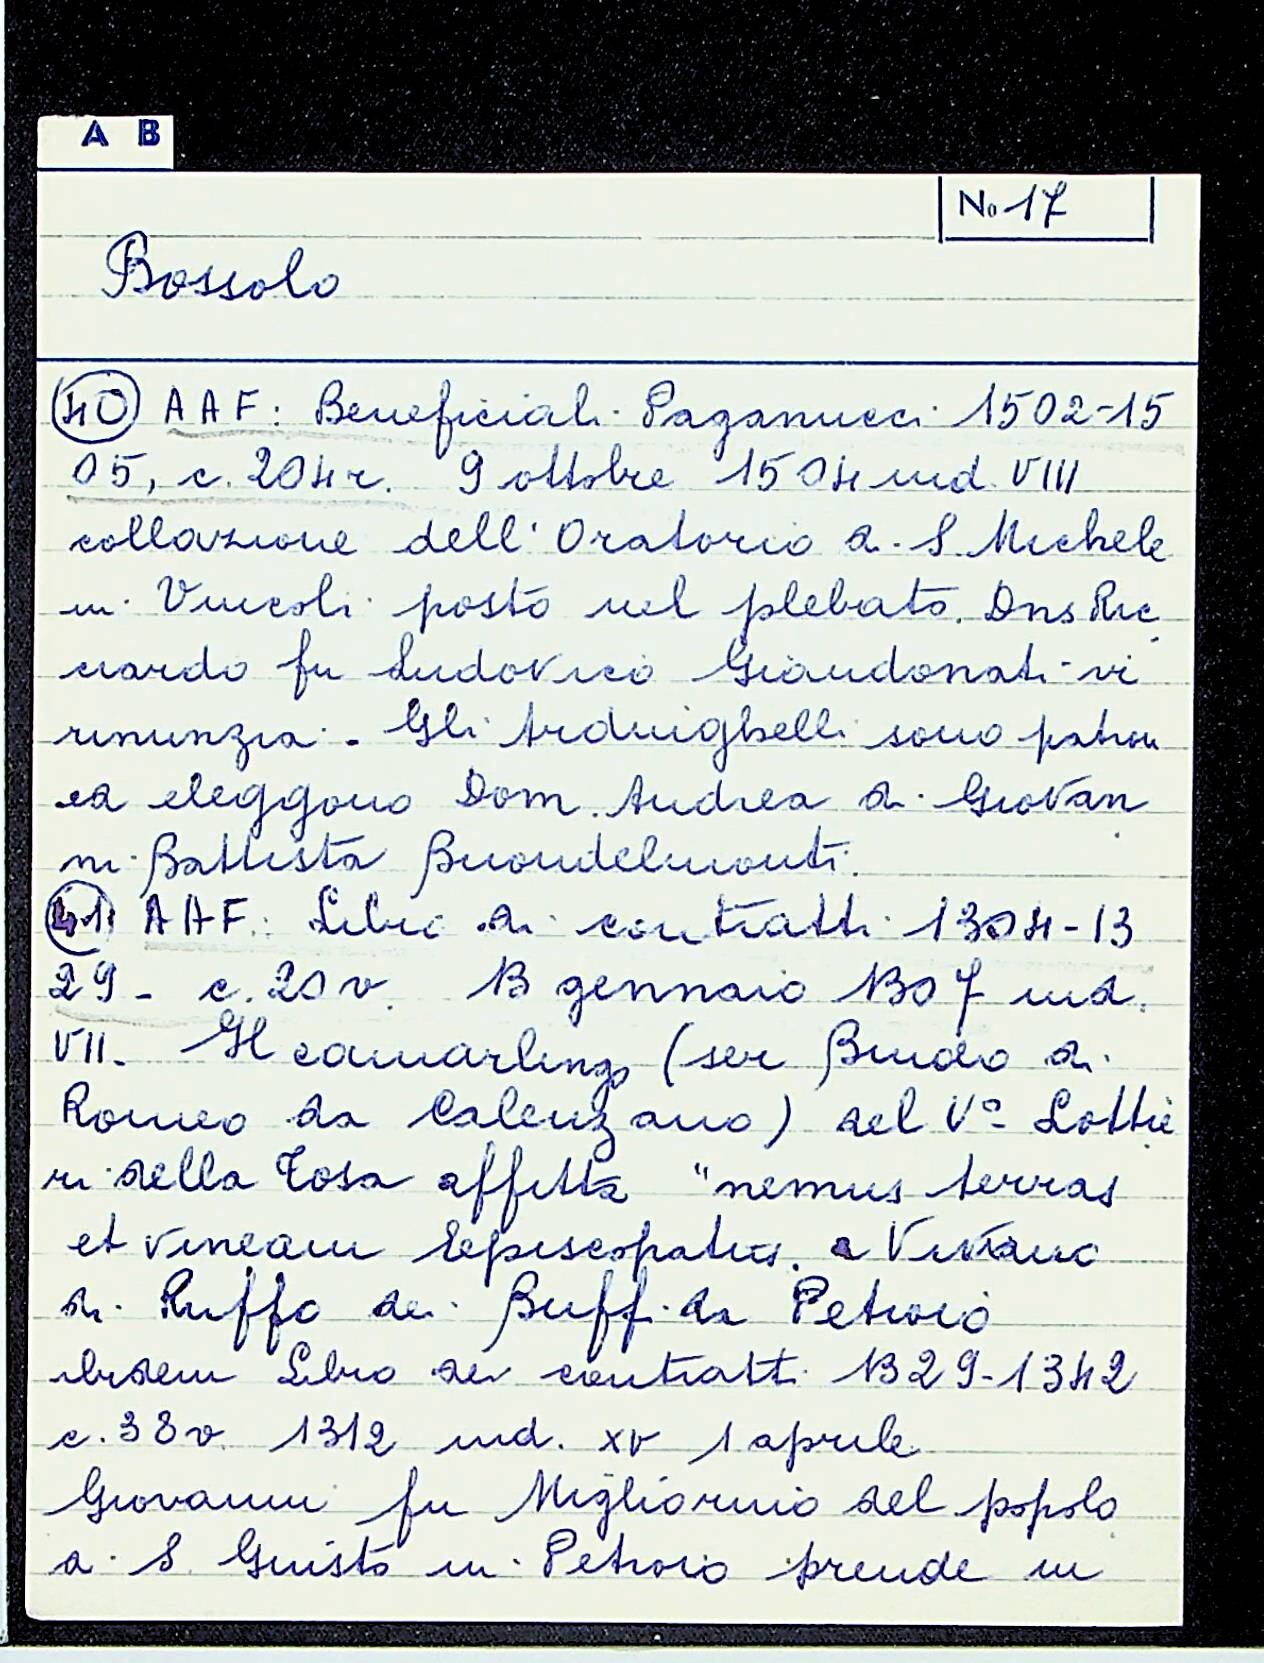 A B
No 17
Bossolo
40 AAF: Beneficiali Paganucci 1502-15
05, c. 204r. 9 ottobre 1504 ind. VIII
collazione dell'Oratorio di S. Michele
in Vincoli posto nel plebato. Dns Ric
ciardo fu Ludovico Giandonati vi
rinunzia. Gli Arduighelli sono patron
ed eleggono Dom. Andrea di Giovan
ni Battista Buondelmonti.
41 AAF: Libro di contratti 1304-13
29 - c. 20v. 13 gennaio 1307 ind.
VII. Il camarlingo (ser Bindo di
Romeo da Calenzano) del Vo Lottie
ri della Tosa affitta "nemus terras
et vineam Episcopatus. a Viviano
di Ruffo dei Buff. da Petroio
ibidem Libro dei contratti 1329-1342
c. 38v. 1312 ind. XV 1 aprile
Giovanni fu Migliornio del popolo
di S. Giusto in Petroio prende in